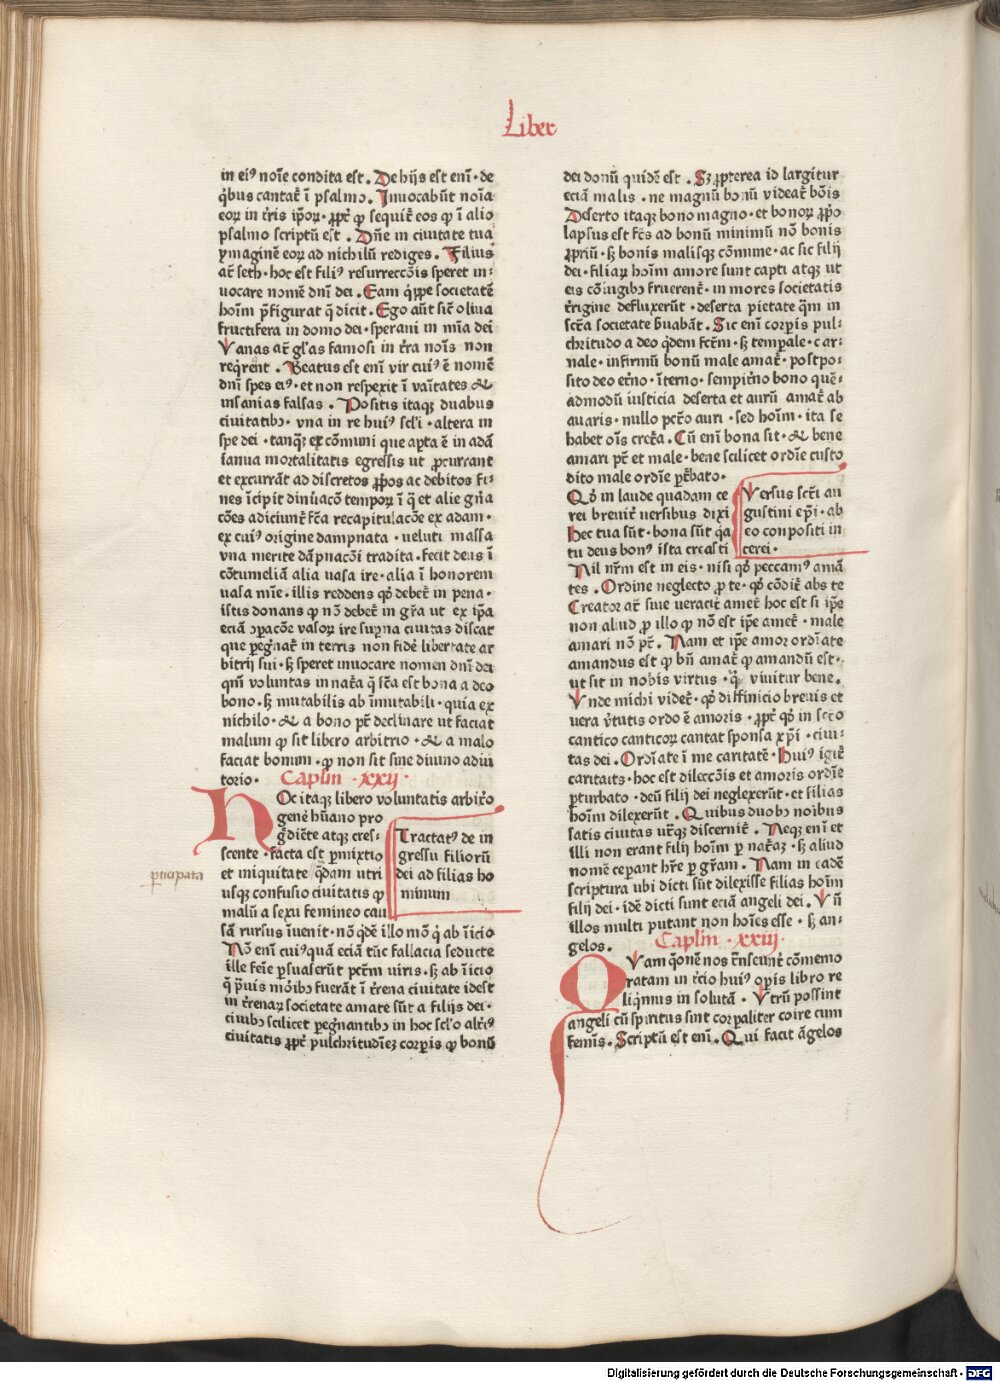 Liber
in ei⁹ noīe condita est. De hijs est enī · de
q̇bus cantat᷑ ī psalmo. Inuocabūt noīa
eoꝝ in t᷑ris ip̄oꝝ · ꝓpt᷑ qꝫ sequit᷑ eos qꝫ ī alio
psalmo scriptū est. Dn̄e in ciuitate tua
ymaginē eoꝝ ad nichilū rediges. Filius
at᷑ seth · hoc est fili⁹ resurreccōis speret in⸗
uocare nomē dn̄i dei. Eam q̇ppe societatē
hoīm p̄figurat q̄ dicit. Ego aūt sic᷑ oliua
fructifera in domo dei · speraui in mīa dei
Vanas at᷑ gl̄as famosi in t᷑ra noīs non
req̇rent. Beatus est enī vir cui⁹ ē nomē
dn̄i spes ei⁹ · et non respexit ī vaītates ⁊
insanias falsas. Positis itaqꝫ duabus
ciuitatibꝰ · vna in re hui⁹ sc̄li · altera in
spe dei · tanqꝫ ex cōmuni que ap̄ta ē in adā
ianua mortalitatis egressis ut ꝓcurrant
et excurrāt ad discretos ꝓp̄os ac debitos fi⸗
nes īcipit dinūacō tempoꝝ ī q̇ et alie gn̄a
cōes adiciunt᷑ fc̄a recapitulacōe ex adam ·
ex cui⁹ origine dampnata · veluti massa
vna merite dāpnacōi tradita · fecit deus ī
cōtumeliā alia uasa ire · alia ī honorem
uasa mīe · illis reddens qꝫ debet᷑ in pena ·
istis donans qꝫ nō debet᷑ in gr̄a ut ex ip̄a
eciā ꝯpacōe vasoꝝ ire sup̄na ciuitas discat
que pegnat᷑ in terris non fidē libertate ar
bitrij sui · sꝫ speret inuocare nomen dn̄i dei
qm̄ voluntas in nat᷑a q̄ fc̄a est bona a deo
bono · sꝫ mutabilis ab īmutabili · quia ex
nichilo · ⁊ a bono pt̄ declinare ut faciat
malum qꝫ sit libero arbitrio · ⁊ a malo
faciat bonum · qꝫ non sit sine diuino adiu
torio. Caplm · xxij ·
HOc itaqꝫ libero voluntatis arbit᷑o
genē hūano pro
g̊diēte atqꝫ cres⸗
scente · facta est ꝑmixtio
et iniquitate q̊dam utri
usqꝫ confusio ciuitatis qꝫ
malū a sexu femineo cau
sā rursus īuenit · nō q̇dē illo mō q̇ ab īicio
Nō enī cui⁹quā eciā tūc fallacia seducte
ille feīe ꝑsuaserūt pctm̄ viris · sꝫ ab īicio
q̄ p̄uis mōibꝰ fuerāt ī t᷑rena ciuitate idest
in t᷑renaꝝ societate amate sūt a filijs dei ·
ciuibꝰ scilicet pegnantibꝰ in hoc sc̄lo alt᷑i⁹
ciuitatis ꝓpt᷑ pulchritudīeꝫ corꝑis qꝫ bonū
Tractat⁹ de in
gressu filiorū
dei ad filias ho
minum
ꝑticipata
dei donū quidē est. Sꝫ ꝓpterea id largitur
eciā malis · ne magnū bonū videat᷑ bōis
Deserto itaqꝫ bono magno · et bonoꝝ ꝓp̄o
lapsus est fc̄s ad bonū minimū nō bonis
ꝓpriū · sꝫ bonis malisqꝫ cōmune · ac sic filij
dei · filiaꝝ hoīm amore sunt capti atqꝫ ut
eis cōiugibꝰ fruerent᷑ · in mores societatis
t᷑rigine defluxerūt · deserta pietate q̄m in
sc̄ta societate ẜuabāt. Sic enī corꝑis pul⸗
chritudo a deo q̇dem fc̄tm · sꝫ temꝑale · car⸗
nale · infirmū bonū male amat᷑ · postpo⸗
sito deo et᷑no · īterno · sempit᷑no bono quē⸗
admodū iusticia deserta et aurū amat᷑ ab
auaris · nullo pctō auri · sed hoīm · ita se
habet oīs creat᷑a. Cū enī bona sit · ⁊ bene
amari pt̄ et male · bene scilicet ordīe custo
dito male ordīe ꝑt᷑bato ·
Qꝫ in laude quadam ce
rei breuit᷑ versibus dixi
Hec tua sūt · bona sūt q̇a
tu deus bon⁹ ista creasti
Versus sct̄i au
gustini ep̄i · ab
eo conpositi in
cerei ·
Nil nr̄m est in eis · nisi qꝫ peccam⁹ amā
tes. Ordine neglecto ꝓ te · qꝫ cōdit᷑ abs te
Creator at᷑ siue veracit᷑ amet᷑ hoc est si ip̄e
non aliud ꝓ illo qꝫ nō est ip̄e amet᷑ · male
amari nō pt̄. Nam et ip̄e amor ordīate
amandus est qꝫ bn̄ amat᷑ qꝫ amandū est ·
ut sit in nobis virtus · q̇ viuitur bene.
Vnde michi videt᷑ · qꝫ diffinicio breuis et
uera v᷑tutis ordo ē amoris · ꝓpt᷑ qꝫ in sc̄o
cantico canticoꝝ cantat sponsa xp̄i · ciui⸗
tas dei. Ordīate ī me caritatē · Hui⁹ igit᷑
caritatis · hoc est dileccōis et amoris ordīe
ꝑturbato · deū filij dei neglexerūt · et filias
hoīm dilexerūt. Quibus duobꝰ noībus
satis ciuitas ut᷑qꝫ discernit᷑. Neqꝫ enī et
illi non erant filij hoīm ꝑ nat᷑aꝫ · sꝫ aliud
nomē ceꝑant hr̄e ꝑ gr̄am. Nam in eadē
scriptura ubi dicti sūt dilexisse filias hoīm
filij dei · idē dicti sunt eciā angeli dei. Vn̄
illos multi putant non hoīes esse · sꝫ an⸗
gelos. Caplm · xxiij ·
QVam q̄onē nos t᷑nscunt᷑ cōmemo
ratam in t᷑cio hui⁹ oꝑis libro re
liq̇mus in solutā. Vtrū possint
angeli cū spiritus sint corꝑaliter coire cum
femīs. Scriptū est enī. Qui facit āgelos
Digitalisierung gefördert durch die Deutsche Forschungsgemeinschaft - DFG